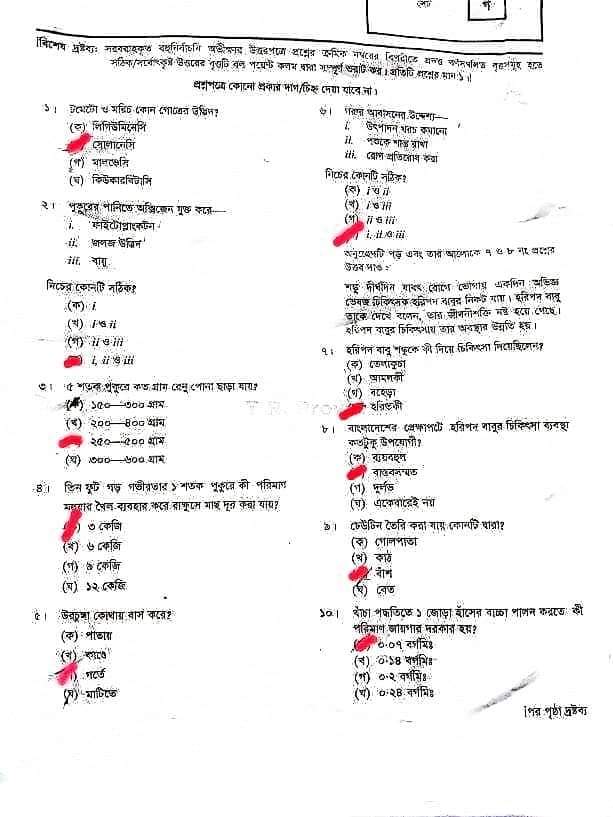 সেট
গ
[বিশেষ দ্রষ্টব্য: সরবরাহকৃত বহুনির্বাচনি অভীক্ষার উত্তরপত্রে প্রশ্নের ক্রমিক নম্বরের বিপরীতে প্রদত্ত বর্ণসংবলিত বৃত্তসমূহ হতে
সঠিক/সর্বোৎকৃষ্ট উত্তরের বৃত্তটি বল পয়েন্ট কলম দ্বারা সম্পূর্ণ ভরাট কর। প্রতিটি প্রশ্নের মান ১।]
প্রশ্নপত্রে কোনো প্রকার দাগ/চিহ্ন দেয়া যাবে না।
১। টমেটো ও মরিচ কোন গোত্রের উদ্ভিদ?
(ক) লিগিউমিনেসি
সোলানেসি
(গ) মালভেসি
(ঘ) কিউকারবিটাসি
২। পুকুরের পানিতে অক্সিজেন যুক্ত করে—
i. ফাইটোপ্লাংকটন
ii. জলজ উদ্ভিদ
iii. বায়ু
নিচের কোনটি সঠিক?
(ক) i
(খ) i ও ii
(গ) ii ও iii
i, ii ও iii
৩। ৫ শতক পুকুরে কত গ্রাম রেনু পোনা ছাড়া যায়?
(ক) ১৫০—৩০০ গ্রাম
(খ) ২০০—৪০০ গ্রাম
২৫০—৫০০ গ্রাম
(ঘ) ৩০০—৬০০ গ্রাম
৪। তিন ফুট গড় গভীরতার ১ শতক পুকুরে কী পরিমাণ
মহুয়ার খৈল ব্যবহার করে রাক্ষুসে মাছ দূর করা যায়?
৩ কেজি
(খ) ৬ কেজি
(গ) ৯ কেজি
(ঘ) ১২ কেজি
৫। উরচুঙ্গা কোথায় বাস করে?
(ক) পাতায়
(খ) কান্ডে
গর্তে
(ঘ) মাটিতে
৬। গরুর আবাসনের উদ্দেশ্য—
i. উৎপাদন খরচ কমানো
ii. পশুকে শান্ত রাখা
iii. রোগ প্রতিরোধ করা
নিচের কোনটি সঠিক?
(ক) i ও ii
(খ) i ও iii
(গ) ii ও iii
i, ii ও iii
অনুচ্ছেদটি পড় এবং তার আলোকে ৭ ও ৮ নং প্রশ্নের
উত্তর দাও:
শম্ভু দীর্ঘদিন যাবৎ রোগে ভোগায় একদিন অভিজ্ঞ
ভেষজ চিকিৎসক হরিপদ বাবুর নিকট যায়। হরিপদ বাবু
তাকে দেখে বলেন, তার জীবনীশক্তি নষ্ট হয়ে গেছে।
হরিপদ বাবুর চিকিৎসায় তার অবস্থার উন্নতি হয়।
৭। হরিপদ বাবু শম্ভুকে কী দিয়ে চিকিৎসা দিয়েছিলেন?
(ক) তেলাকুচা
(খ) আমলকী
(গ) বহেড়া
হরিতকী
৮। বাংলাদেশের প্রেক্ষাপটে হরিপদ বাবুর চিকিৎসা ব্যবস্থা
কতটুকু উপযোগী?
(ক) ব্যয়বহুল
বাস্তবসম্মত
(গ) দুর্লভ
(ঘ) একেবারেই নয়
৯। ঢেউটিন তৈরি করা যায় কোনটি দ্বারা?
(ক) গোলপাতা
(খ) কাঠ
বাঁশ
(ঘ) বেত
১০। খাঁচা পদ্ধতিতে ১ জোড়া হাঁসের বাচ্চা পালন করতে কী
পরিমাণ জায়গার দরকার হয়?
০·০৭ বর্গমিঃ
(খ) ০·১৪ বর্গমিঃ
(গ) ০·২ বর্গমিঃ
(ঘ) ০·২৪ বর্গমিঃ
[পর পৃষ্ঠা দ্রষ্টব্য